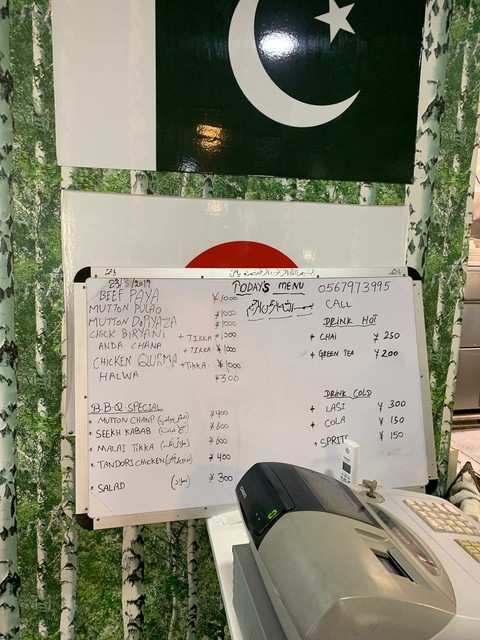 23/8/2019
TODAY'S MENU
0567973995
CALL
BEEF PAYA ¥1000
MUTTON PULAO ¥1000
MUTTON DOPIYAZA ¥1000
CHICK BIRYANI + TIKKA
ANDA CHANA + TIKKA ¥1000
CHICKEN QURMA + TIKKA ¥1000
HALWA ¥300
B.B.Q SPECIAL
* MUTTON CHANP ¥400
* SEEKH KABAB ¥600
* MALAI TIKKA ¥600
* TANDORI CHICKEN ¥400
* SALAD (سلاد) ¥300
DRINK HOT
+ CHAI ¥250
+ GREEN TEA ¥200
DRINK COLD
+ LASI ¥300
+ COLA ¥150
+ SPRITE ¥150